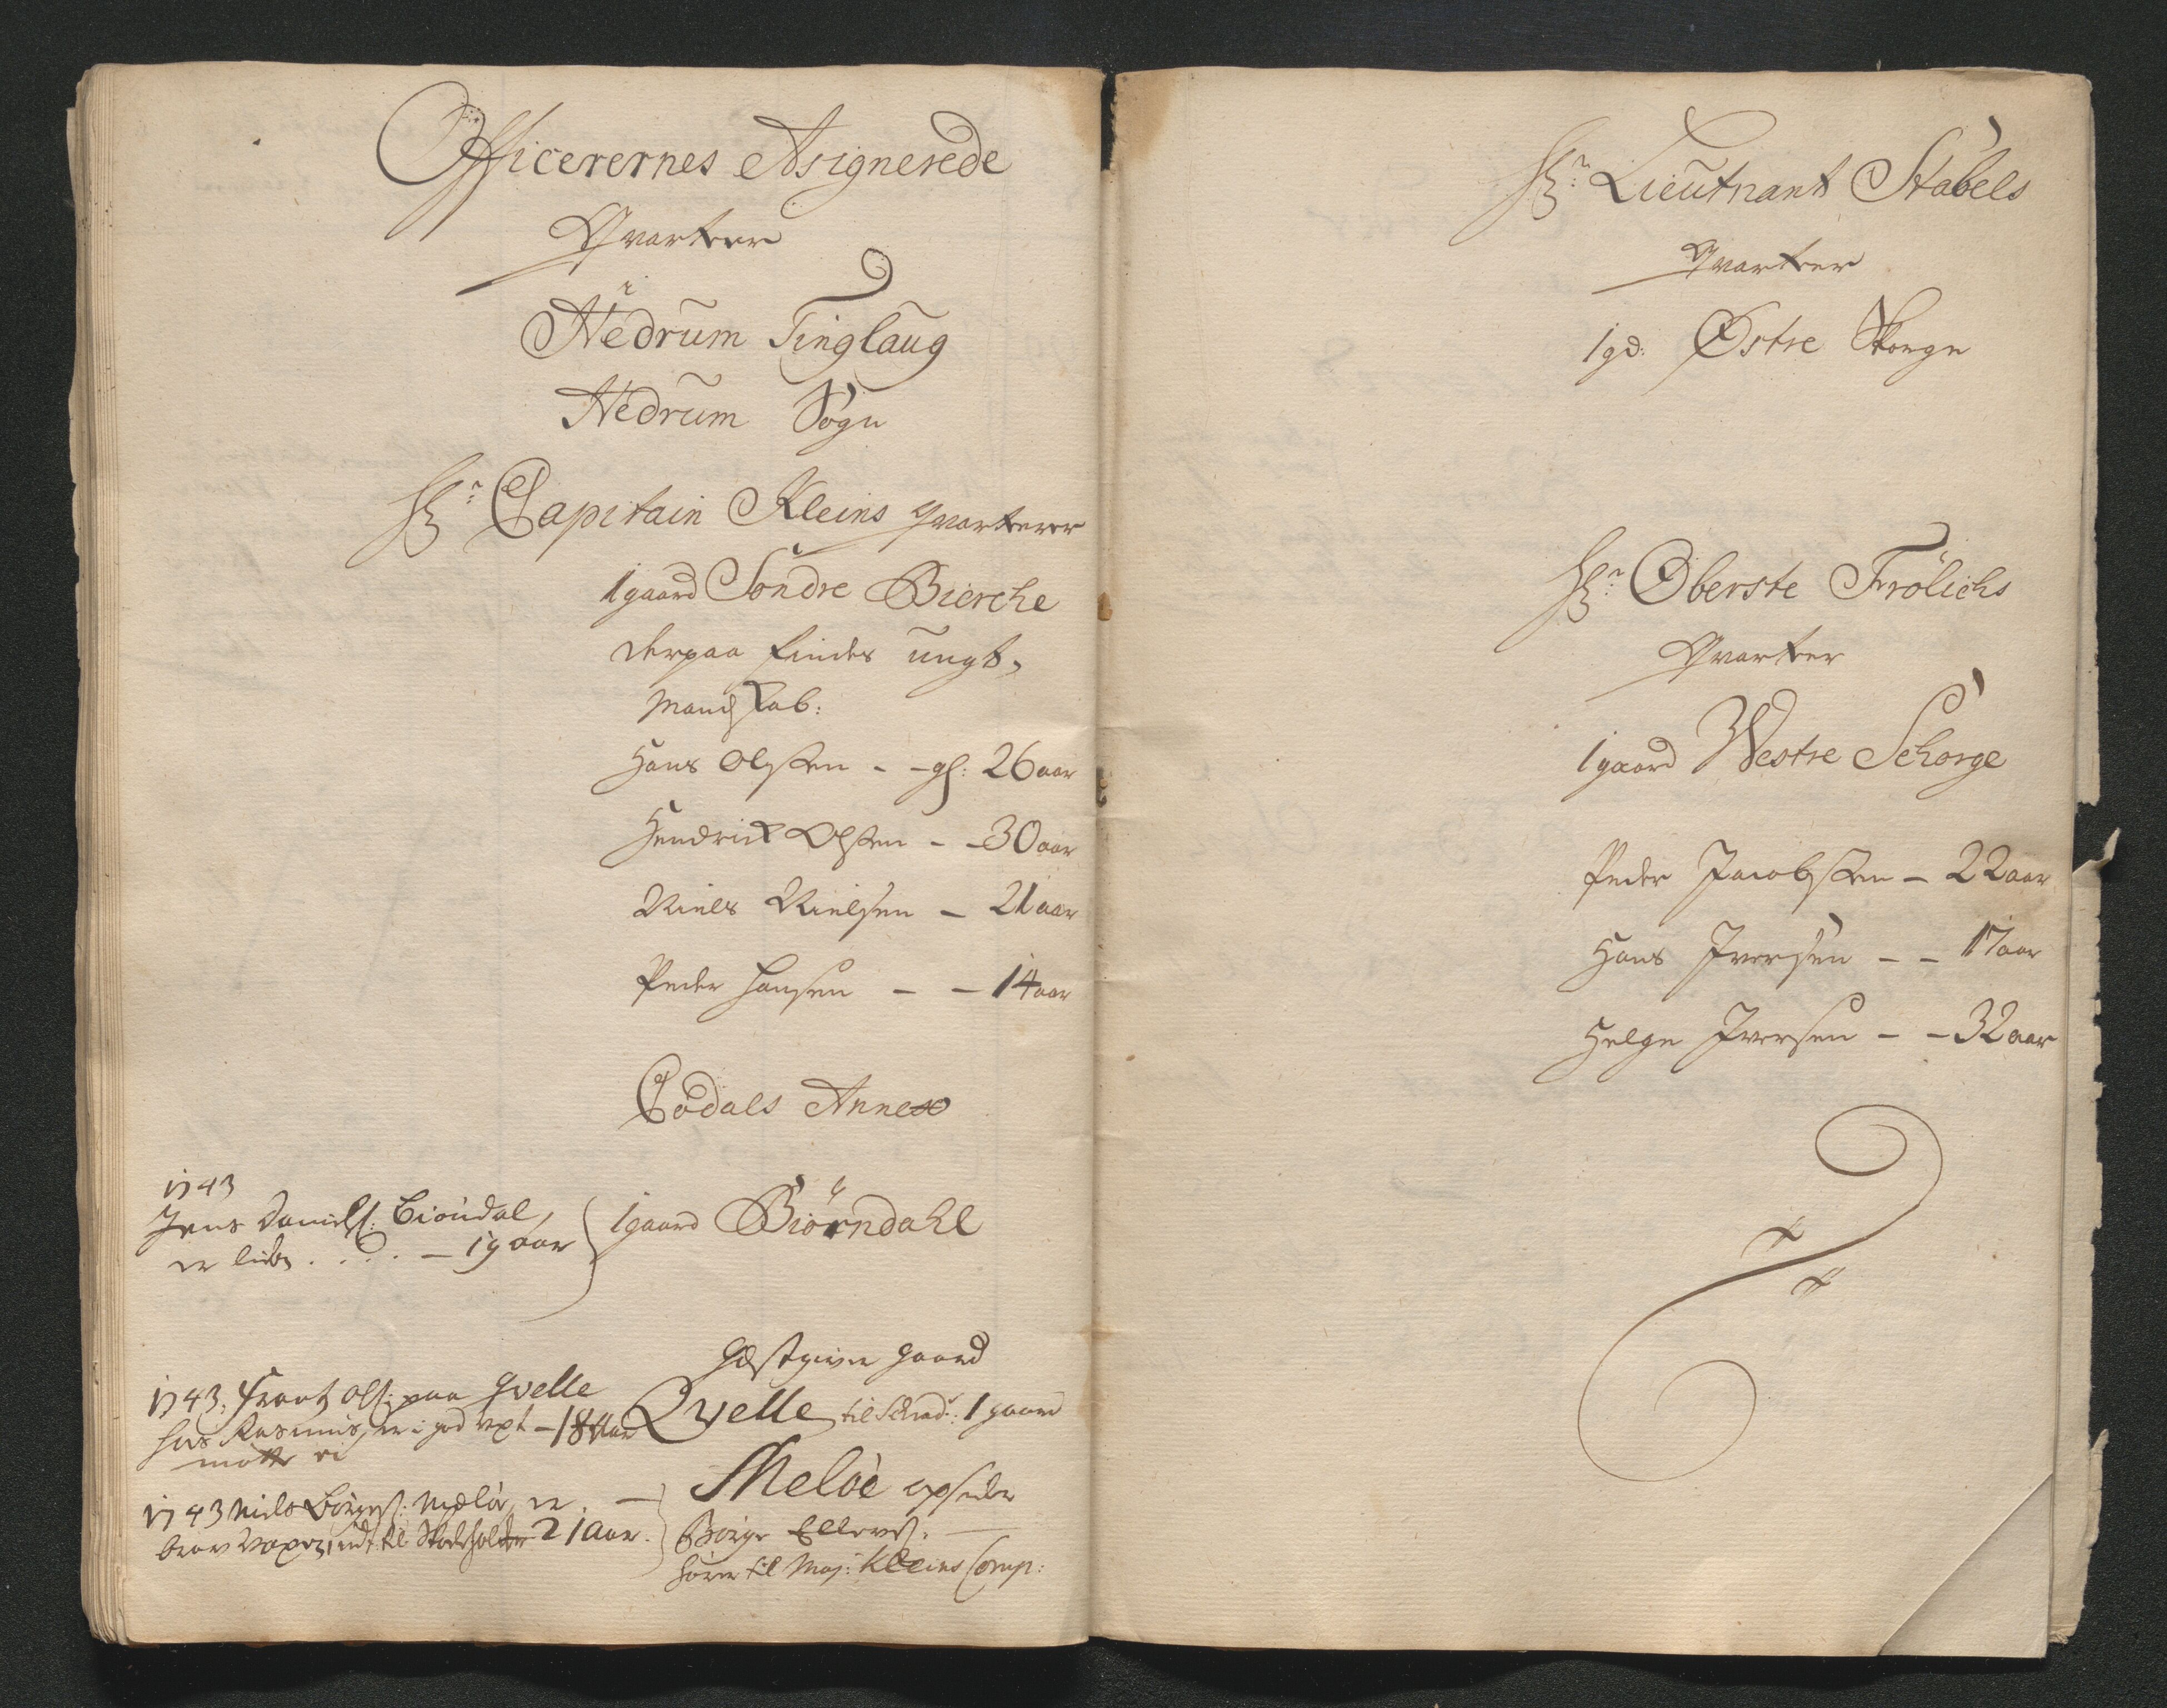 Officerernes Asignerede
Qvarteer
i
Hedrum Tinglaug
Hedrum Sogn
Hr: Capitain Kleins qvarterer
1 gaard Söndre Bierche
derpaa findes ungt,
Mandskab:
Hans Olssen - - gl: 26 aar
Hendrick Olssen - - 30 aar
Niels Nielsen - 21 aar
Peder Hansen - - 14 aar
Qodals Annex
1743
Jens Daniels: Biöndal,
er liden . . . . - 19 aar
1 gaard Biörndahl
Gästgiver Gaard
1743. Frantz Ols: paa qvelle
hos Rasmus, er i god vext - 18 Aar
mötte ei
Qvelle til Schd: 1 gaard
1743 Niels Börges: Melöe er. -
brav Voxen, indt: til 21 Aar.
Meløe opsider
Börge Ellevs:
hörer til Maj: Kleins Comp:
Hr: Lieutnant Stabels
Qvarteer
1 gd: Østre Skorge
Hr: Oberste Frölichs
Qvarteer
1 gaard Westre Schorge
Peder Jacobssen - 22 aar
Hans Iversen - - 17 aar
Helge Iversen - - 32 aar